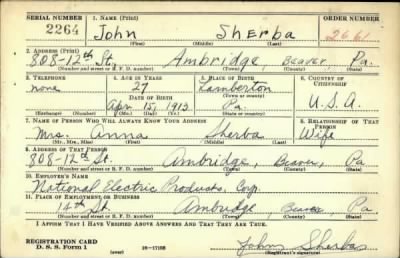 SERIAL NUMBER 1. NAME (Print) ORDER NUMBER
2264 John Sherba 2661
(First) (Middle) (Last)
2. ADDRESS (Print)
808-12th St. Ambridge, Beaver, Pa.
(Number and street or R. F. D. number) (Town) (County) (State)
3. TELEPHONE 4. AGE IN YEARS 5. PLACE OF BIRTH 6. COUNTRY OF CITIZENSHIP
none 27 Lamberton
DATE OF BIRTH (Town or county)
Apr. 15, 1913 Pa. U.S.A.
(Exchange) (Number) (Mo.) (Day) (Yr.) (State or country)
7. NAME OF PERSON WHO WILL ALWAYS KNOW YOUR ADDRESS 8. RELATIONSHIP OF THAT PERSON
Mrs. Anna Sherba Wife
(Mr., Mrs., Miss) (First) (Middle) (Last)
9. ADDRESS OF THAT PERSON
808-12th St. Ambridge, Beaver, Pa
(Number and street or R. F. D. number) (Town) (County) (State)
10. EMPLOYER'S NAME
National Electric Products, Corp.
11. PLACE OF EMPLOYMENT OR BUSINESS
14th St. Ambridge, Beaver, Pa
(Number and street or R. F. D. number) (Town) (County) (State)
I AFFIRM THAT I HAVE VERIFIED ABOVE ANSWERS AND THAT THEY ARE TRUE.
REGISTRATION CARD
D. S. S. Form 1 (over) 16-17105 John Sherba
(Registrant's signature)